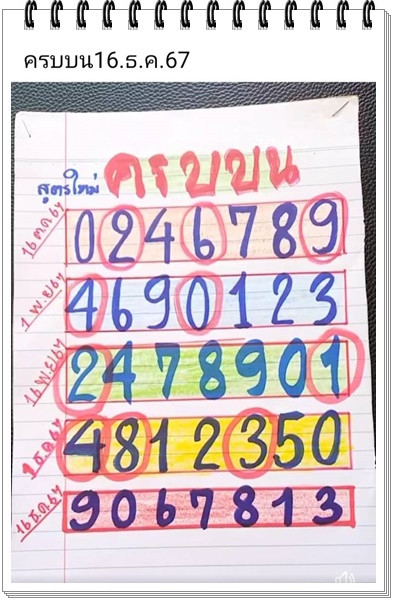 ครบบน16.ธ.ค.67
สูตรใหม่ ครบบน
16 ต.ค 67 0246789
1 พ.ย 67 4690123
16 พ.ย 67 2478901
1 ธ.ค 67 4812350
16 ธ.ค 67 9067813